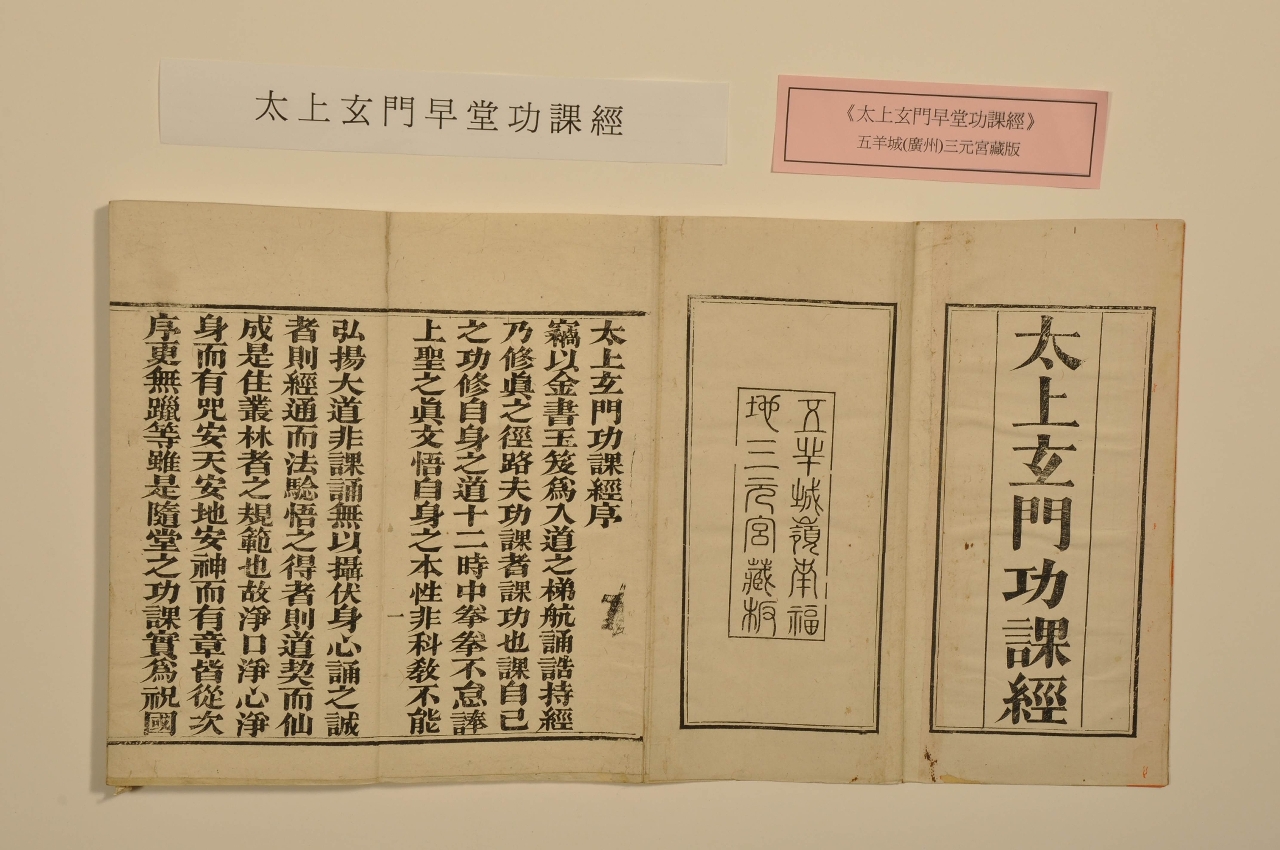 太上玄門早堂功課經
《太上玄門早堂功課經》
五羊城(廣州)三元宮藏版
太上玄門功課經
五羊城嶺南福
地三元宮藏板
太上玄門功課經序
竊以金書玉笈爲入道之梯航誦誥持經
乃修眞之徑路夫功課者課功也課自己
之功修自身之道十二時中拳拳不怠諱
上聖之眞文悟自身之本性非科教不能
一
弘揚大道非課誦無以攝伏身心誦之誠
者則經通而法驗悟之得者則道契而仙
成是住叢林者之規範也故淨口淨心淨
身而有咒安天安地安神而有章皆從次
序更無躐等雖是隨堂之功課實爲祝國